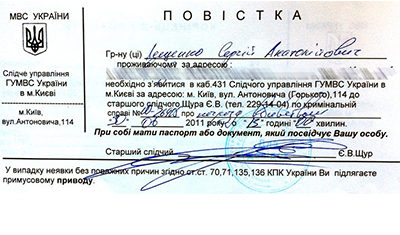 МВС УКРАЇНИ
Слідче управління
ГУМВС України
в м.Києві
м.Київ,
вул.Антоновича,114
ПОВІСТКА
Гр-ну (ці) Лещенко Сергій Анатолійович
проживаючому за адресою :
необхідно з'явитися в каб.431 Слідчого управління ГУМВС України в
м.Києві за адресою: м. Київ, вул. Антоновича (Горького),114 до
старшого слідчого Щура Є.В. (тел. 229-14-04) по кримінальній
справі №
2011 року о 15 годині 00 хвилин.
При собі мати паспорт або документ, який посвідчує Вашу особу.
Старший слідчий Є.В.Щур
У випадку неявки без поважних причин згідно ст.ст. 70,71,135,136 КПК України Ви підлягаєте
примусовому приводу.